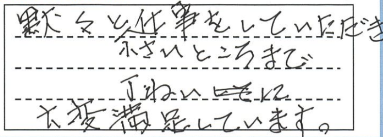 黙々と仕事をしていただき
小さいところまで
丁ねいに
大変満足しています。